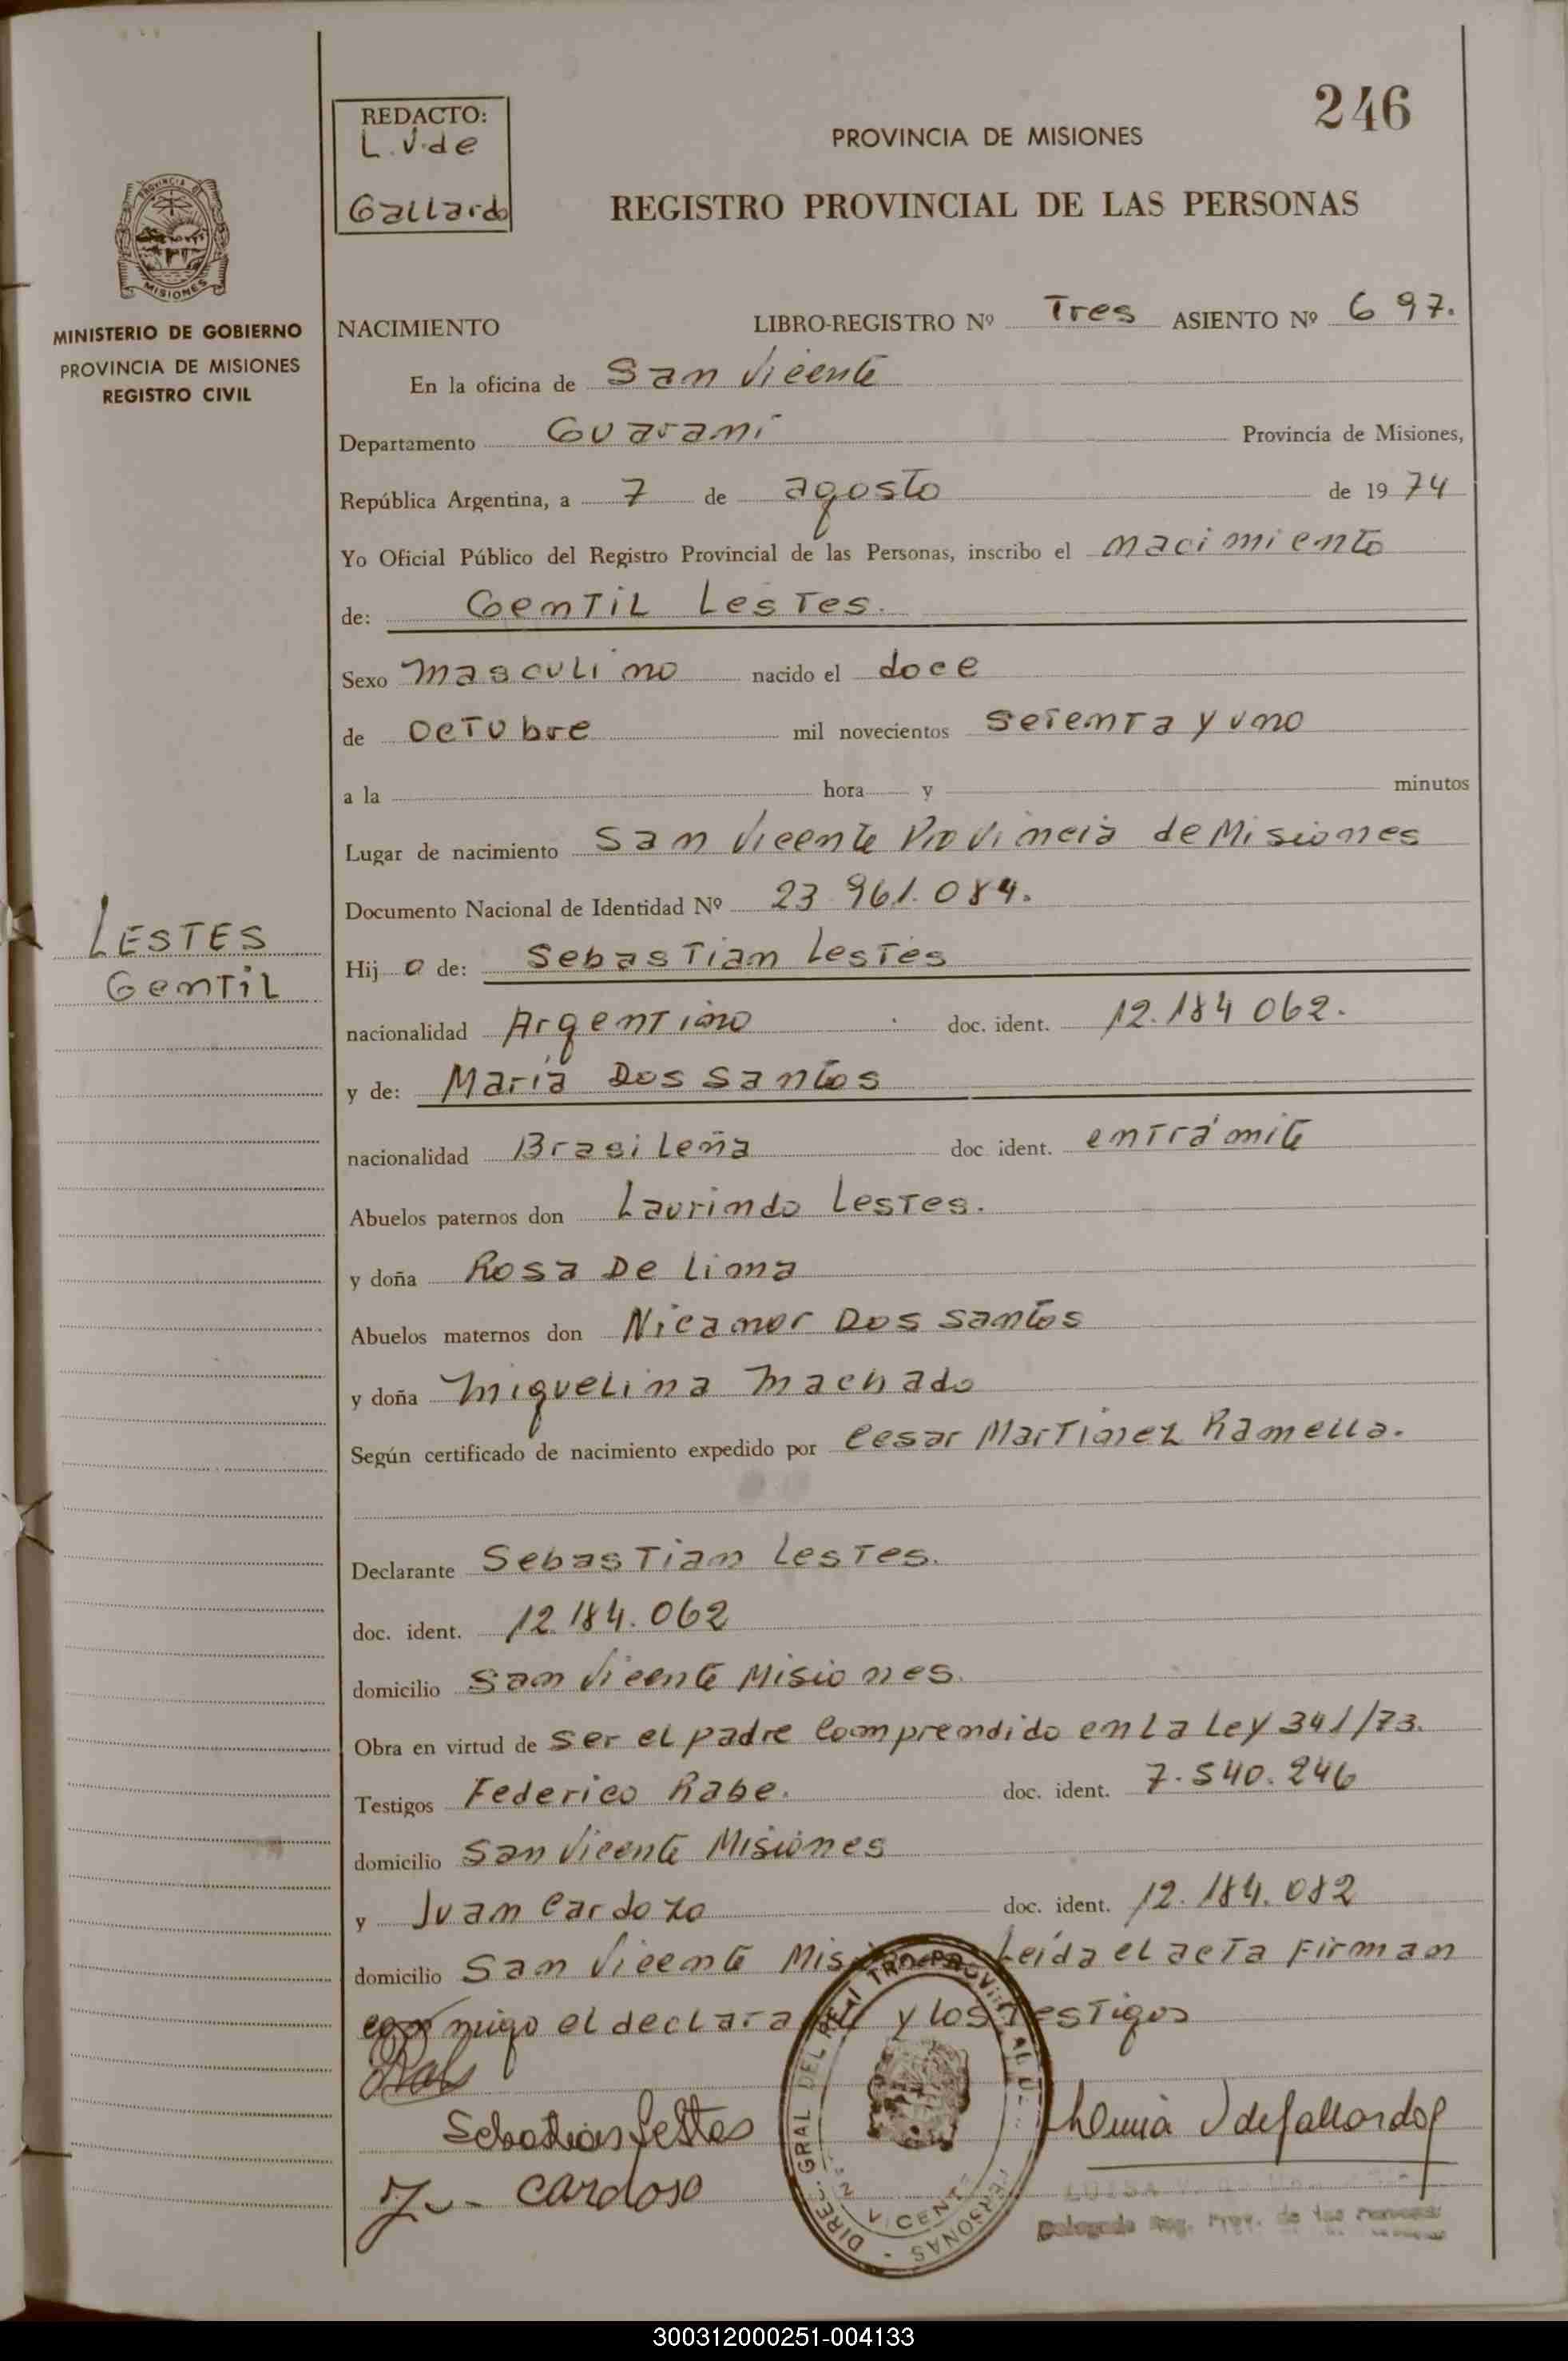 246
REDACTO:
L. V. de
Gallardo
PROVINCIA DE MISIONES
REGISTRO PROVINCIAL DE LAS PERSONAS
MISIONES
MINISTERIO DE GOBIERNO
PROVINCIA DE MISIONES
REGISTRO CIVIL
NACIMIENTO LIBRO-REGISTRO Nº Tres ASIENTO Nº 697.
En la oficina de San Vicente
Departamento Guaraní Provincia de Misiones,
República Argentina, a 7 de agosto de 1974
Yo Oficial Público del Registro Provincial de las Personas, inscribo el nacimiento
de: Gentil Lestes.
Sexo masculino nacido el doce
de octubre mil novecientos setenta y uno
a la hora y minutos
Lugar de nacimiento San Vicente Provincia de Misiones
Documento Nacional de Identidad Nº 23.961.084.
LESTES
Gentil
Hijo de: Sebastian Lestes
nacionalidad Argentino doc. ident. 12.184.062.
y de: María Dos Santos
nacionalidad Brasileña doc ident. en trámite
Abuelos paternos don Laurindo Lestes.
y doña Rosa De Lima
Abuelos maternos don Nicanor Dos Santos
y doña Miquelina Machado
Según certificado de nacimiento expedido por Cesar Martinez Ramella.
Declarante Sebastian Lestes.
doc. ident. 12.184.062
domicilio San Vicente Misiones.
Obra en virtud de ser el padre comprendido en la Ley 341/73.
Testigos Federico Rabe. doc. ident. 7.540.246
domicilio San Vicente Misiones
y Juan Cardozo doc. ident. 12.184.082
domicilio San Vicente Misiones Leída el acta firman
conmigo el declarante y los testigos
Sebastian Lestes
Cardoso
DIREC. GRAL DEL
PERSONAS
Delegada Reg. Prov. de las Personas
300312000251-004133